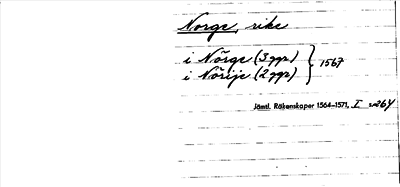 Norge, rike
i Nõrge (3 ggr) } 1567
i Nõrije (2 ggr)
Jämtl. Räkenskaper 1564-1571, I s 264